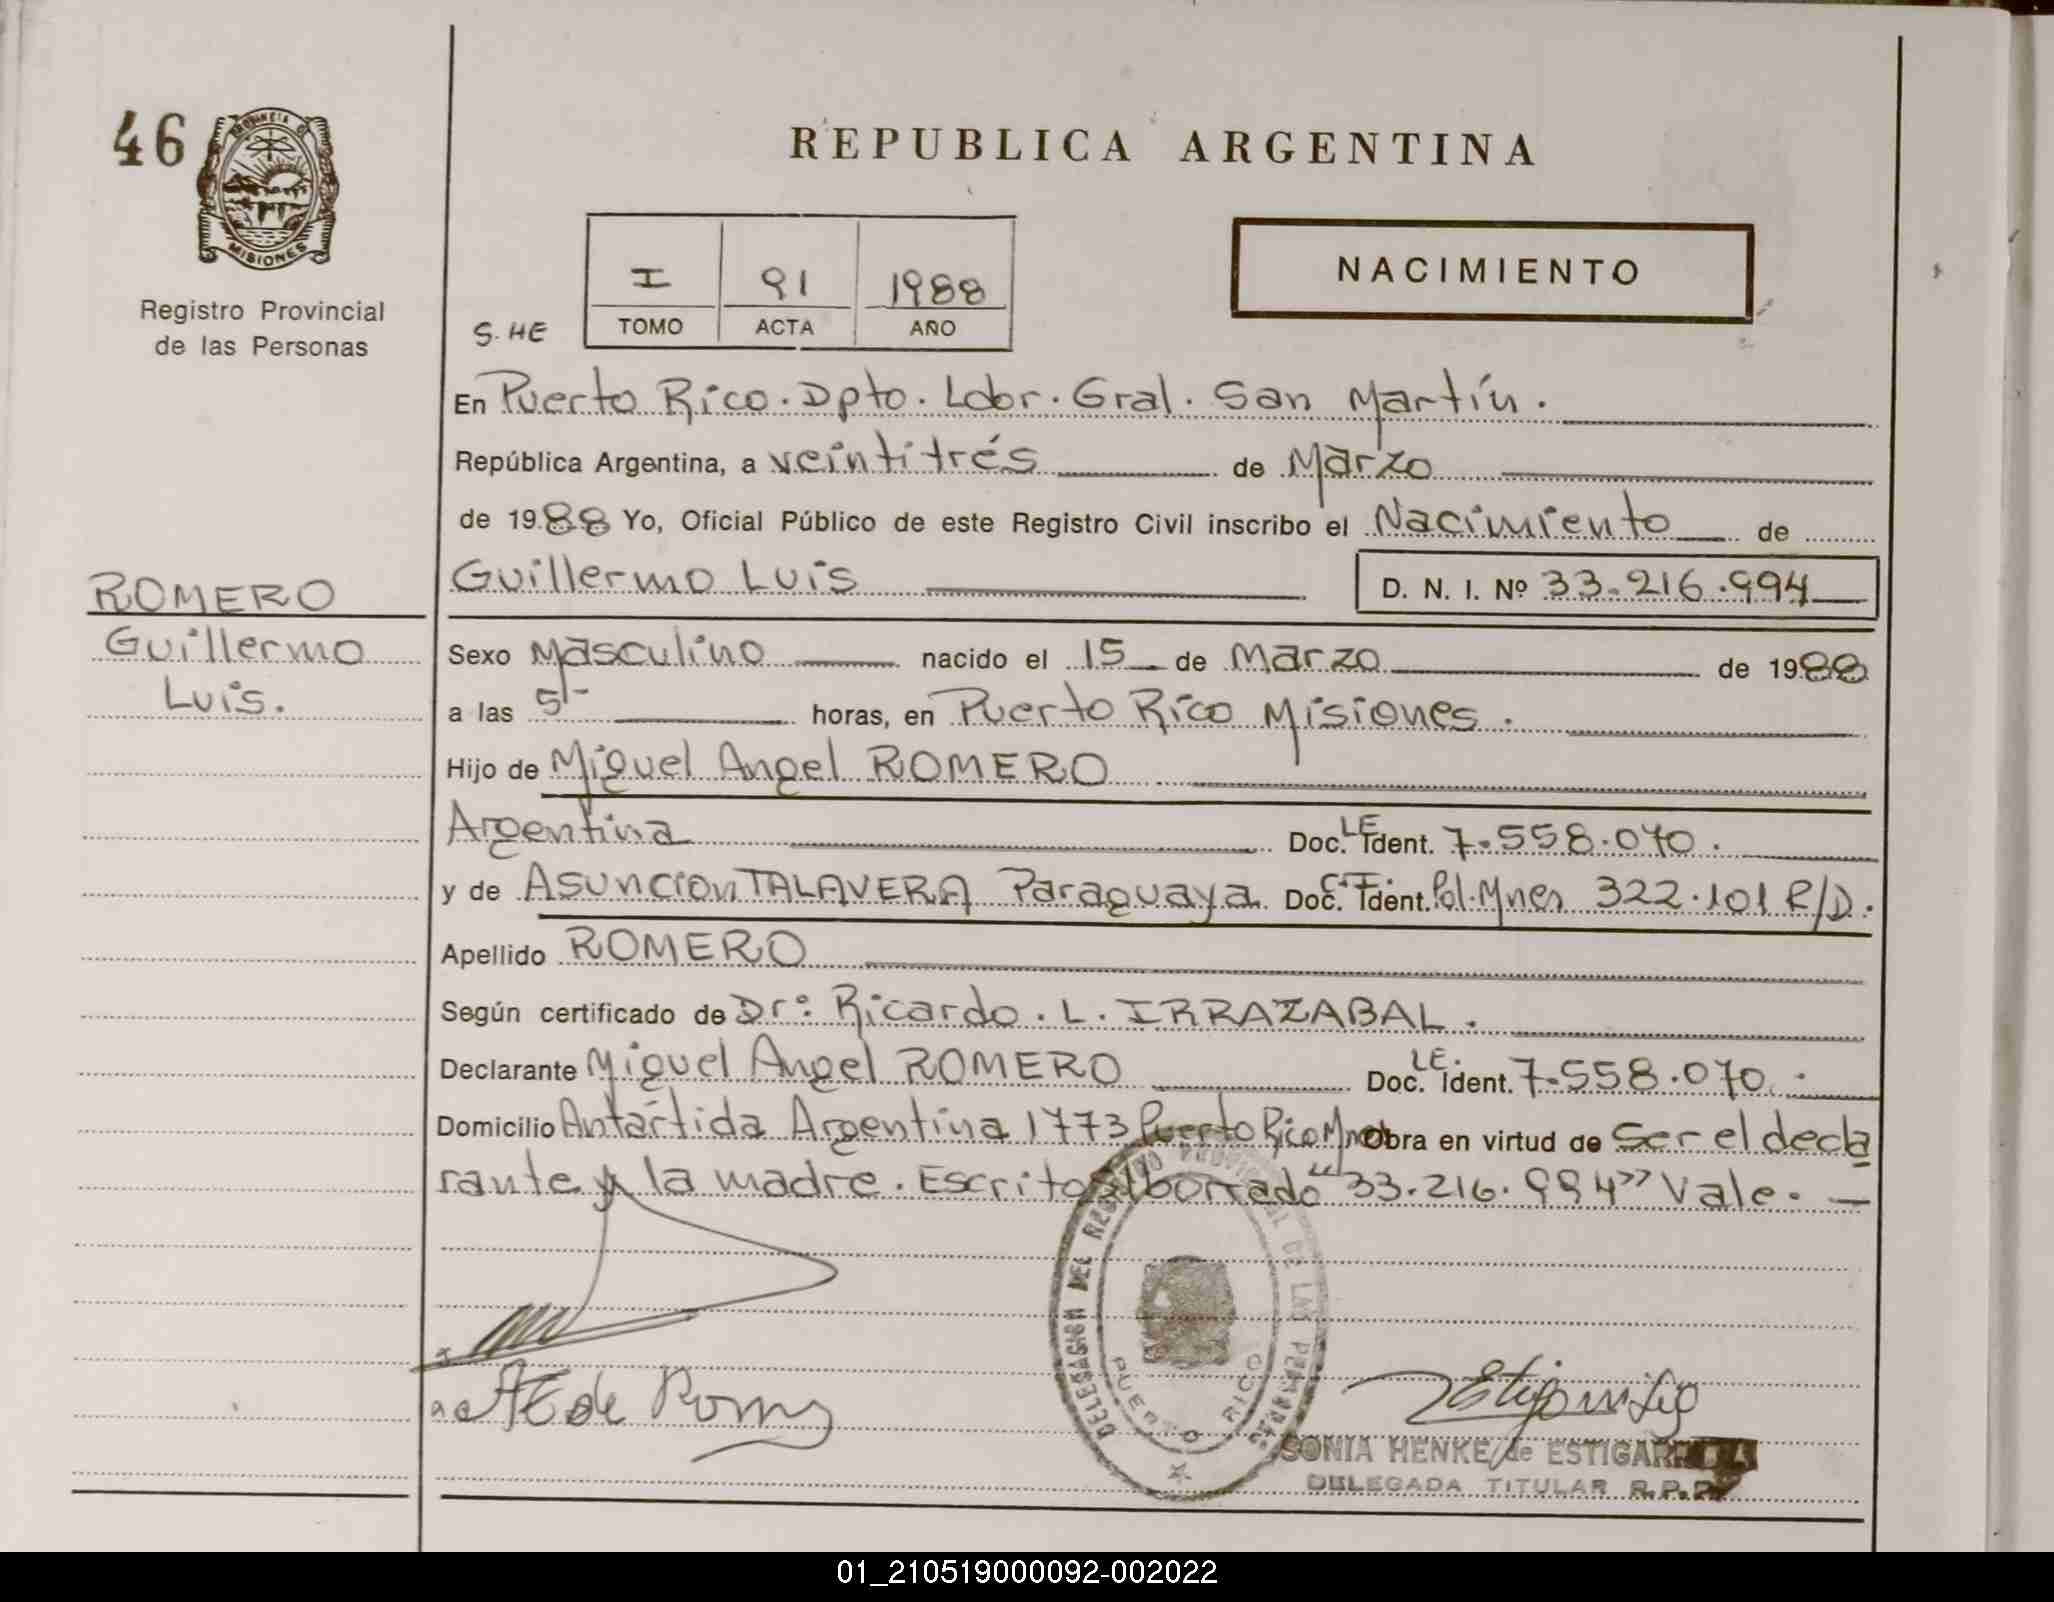 46
PROVINCIA DE
MISIONES
Registro Provincial
de las Personas
REPUBLICA ARGENTINA
NACIMIENTO
I 91 1988
TOMO ACTA AÑO
S. HE
En Puerto Rico. Dpto. Ldor. Gral. San Martín.
República Argentina, a veintitrés de Marzo
de 1988 Yo, Oficial Público de este Registro Civil inscribo el Nacimiento de
Guillermo Luis D. N. I. Nº 33.216.994
ROMERO
Guillermo
Luis.
Sexo Masculino nacido el 15 de Marzo de 1988
a las 5- horas, en Puerto Rico Misiones.
Hijo de Miguel Angel ROMERO
Argentina Doc. LE Ident. 7.558.070.
y de Asuncion TALAVERA Paraguaya Doc. C.I. Ident. Pol. Mnes 322.101 R/D.
Apellido ROMERO
Según certificado de Dr: Ricardo. L. IRRAZABAL.
Declarante Miguel Angel ROMERO Doc. LE. Ident. 7.558.070.
Domicilio Antártida Argentina 1773 Puerto Rico Mnes Obra en virtud de Ser el decla
rante y la madre. Escrito s/borrado "33.216.994" Vale.
DELEGACION DEL REGISTRO PROVINCIAL DE LAS PERSONAS
PUERTO RICO
de Rom
SONIA HENKE de ESTIGARR
DELEGADA TITULAR R.P.P.
01_210519000092-002022